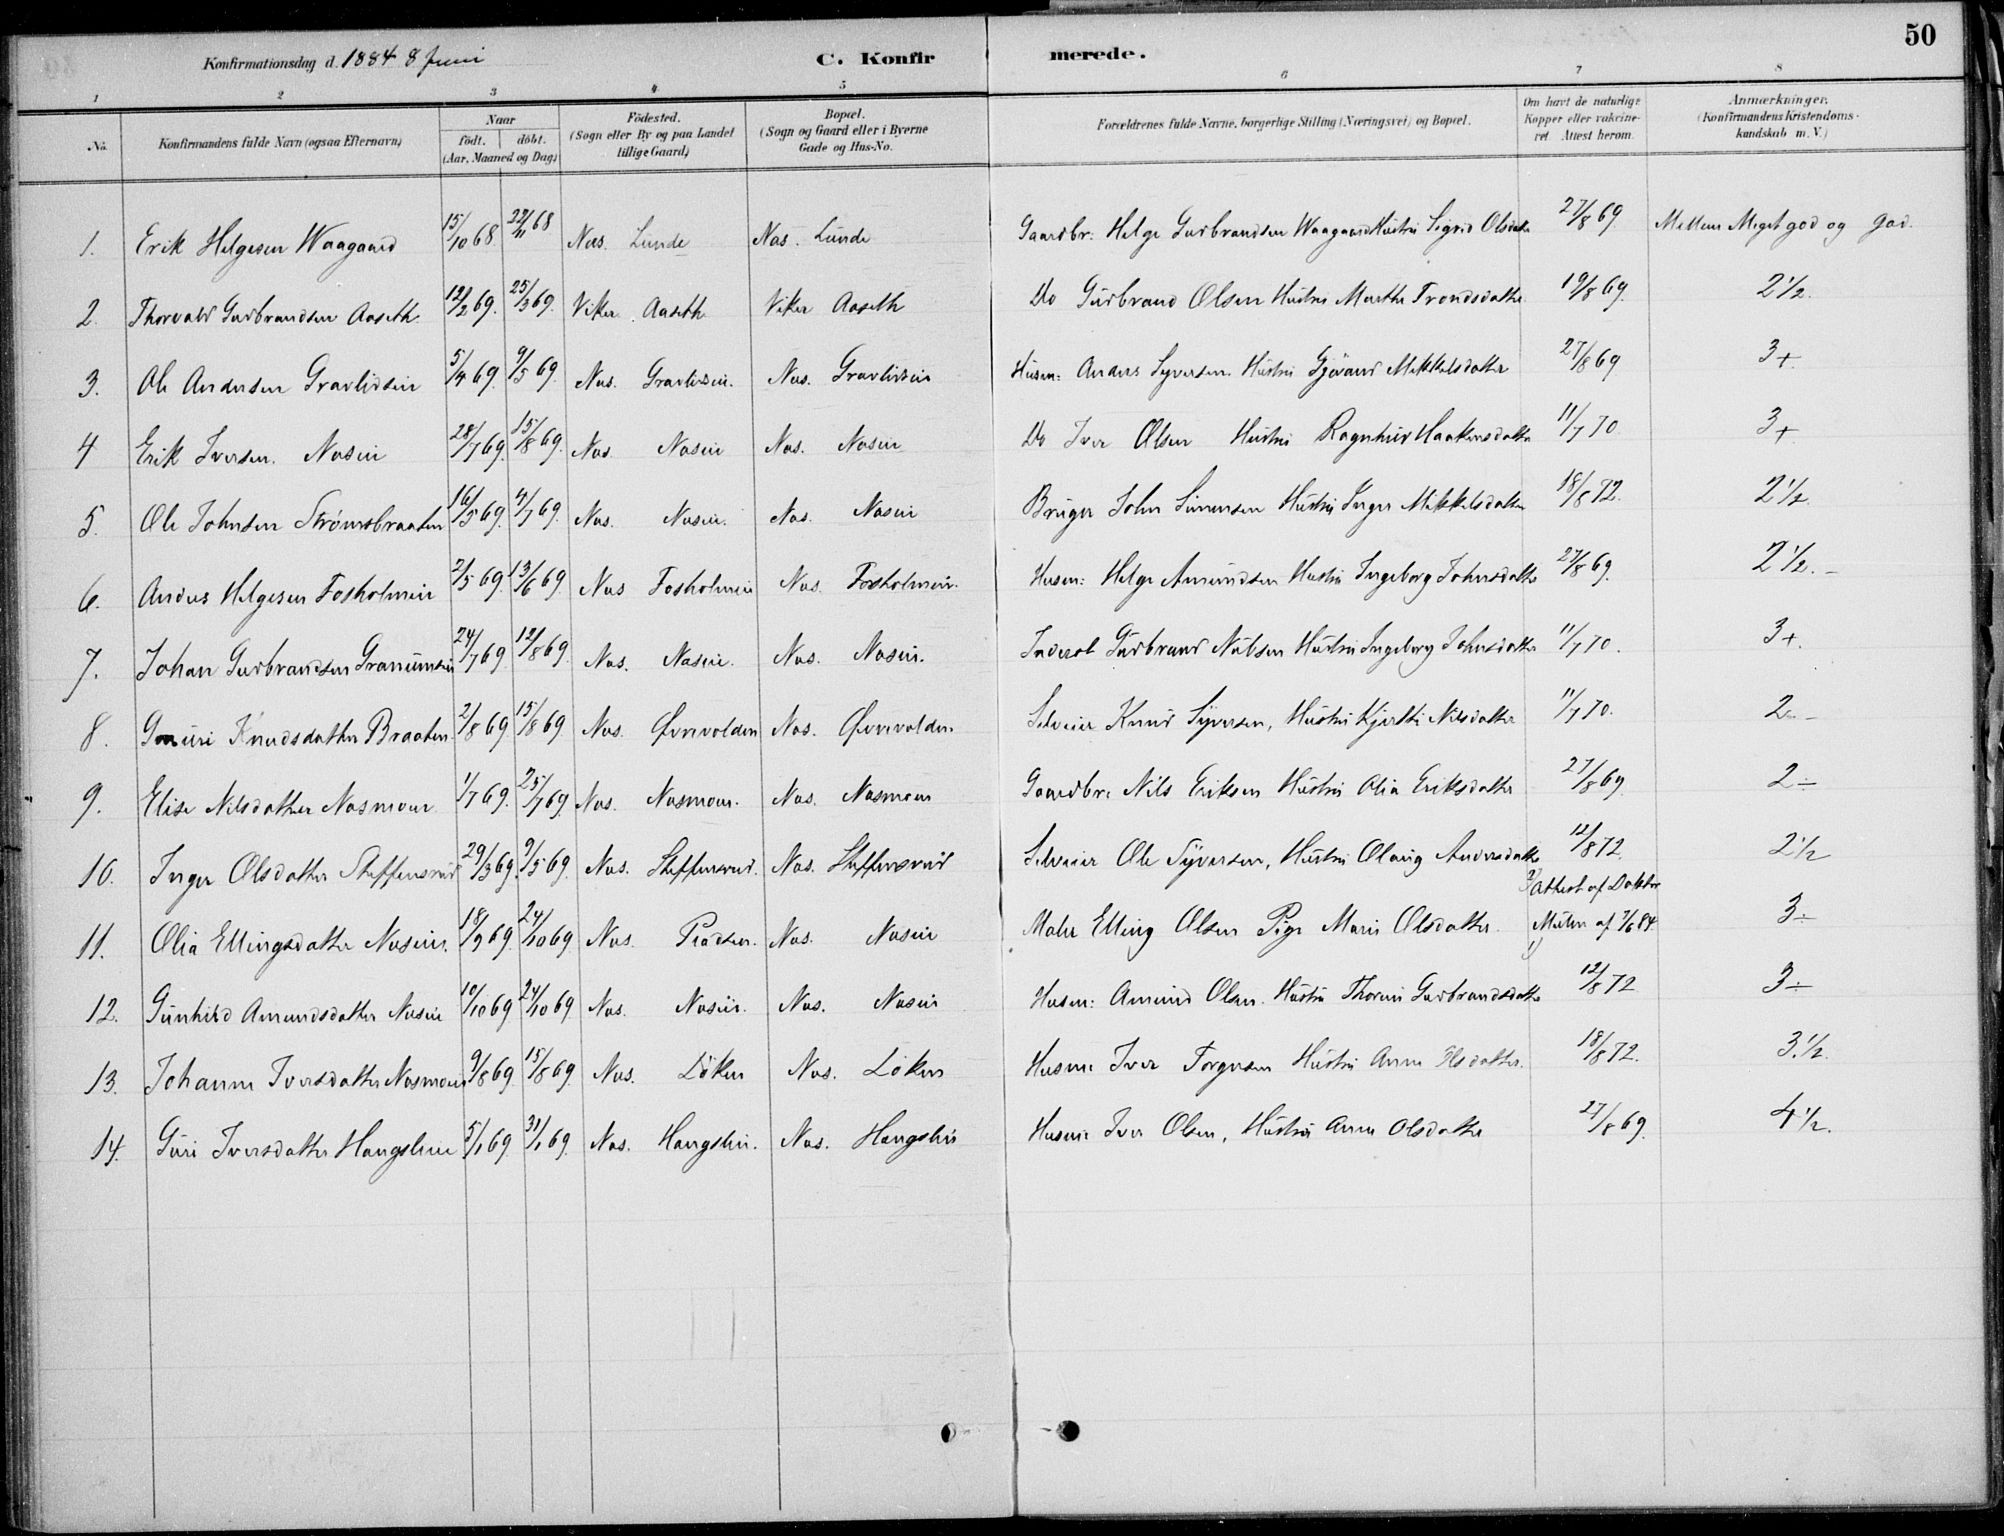 50
Konfirmationsdag d. 1884 8 Juni C. Konfirmerede.
1 2 3 4 5 6 7 8
No. Konfirmandens fulde Navn (ogsaa Efternavn) Naar födt. döbt. (Aar, Maaned og Dag) Födested. (Sogn eller By og paa Landet tillige Gaard) Bopæl. (Sogn og Gaard eller i Byerne Gade og Hus-No. Forældrenes fulde Navne, borgerlige Stilling (Næringsvei) og Bopæl. Om havt de naturlige Kopper eller vakcineret. Attest herom. Anmærkninger. (Konfirmandens Kristendomskundskab m. V.)
1. Erik Helgesen Waagaard 15/10 68 22/11 68 Nas. Lunde Nas. Lunde Gaardbr: Helge Gudbrandsen Waagaard Hustru Sigrid Olsdatter 27/8 69 Mellem Meget god og god.
2. Thorvald Gudbrandsen Aaseth 12/2 69. 25/3 69. Viker Aaseth Viker Aaseth Do Gudbrand Olsen Hustru Marthe Trondsdatter 19/8 69. 2 1/2.
3. Ole Andersen Gravlidsin 5/4 69. 9/5 69. Nas. Gravlidsin. Nas. Gravlidsin Husm: Anders Syversen Hustru Gjövand Mikkelsdatter 27/8 69 3+
4 Erik Iversen Nasin 28/7 69. 15/8 69. Nas. Nasin Nas. Nasin Do Iver Olsen Hustru Ragnhild Haakensdatter 11/7 70 3+
5. Ole Johnsen Strømsbraaten 16/5 69. 4/7 69. Nas. Nasin. Nas. Nasin Bruger John Simensen Hustru Inger Mikkelsdatter 18/8 72. 2 1/2.
6. Anders Helgesen Fosholmin 2/5 69. 13/6 69. Nas Fosholmin Nas. Fosholmin. Husm: Helge Amundsen Hustru Ingeborg Johnsdatter 27/8 69. 2 1/2.-
7. Johan Gudbrandsen 24/7 69 12/8 69. Nas. Nasin. Nas. Nasin. Inderst Gudbrand Nilsen Hustru Ingeborg Johnsdatter 11/7 70. 3+.
8. Knudsdatter Braaten. 2/8 69 15/8 69. Nas. Øvrevolden Nas. Øvrevolden. Selveier Knud Syversen, Hustru Kjersti Nilsdatter 11/7 70. 2 -
9. Elise Nilsdatter Nasmoen 1/7 69. 25/7 69. Nas. Nasmoen. Nas. Nasmoen Gaardbr. Nils Eriksen Hustru Olia Eriksdatter 27/8 69. 2÷
10. Inger Olsdatter Steffensrud 29/3 69. 9/5 69. Nas. Steffensrud. Nas. Steffensrud Selveier Ole Syversen, Hustru Olaug Andersdatter 12/8 72. 2 1/2
11. Olia Ellingsdatter Nasin. 18/9 69. 24/10 69 Nas. Nas. Nasin Maler Elling Olsen Pige Marie Olsdatter. Attest af Doktor af 7/6 84. 3÷
12. Gunhild Amundsdatter Nasin 10/10 69 24/10 69. Nas. Nasin. Nas. Nasin Husm: Amund Olsen. Hustru Thorine Gudbrandsdatter 12/8 72 3÷
13. Johanne Iversdatter Nasmoen 9/8 69. 15/8 69. Nas. Löken Nas. Löken Husm: Iver Torgersen Hustru Anne Olsdatter. 18/8 72. 3 1/2.
14. Guri Iversdatter Haugslien 5/1 69. 31/1 69. Nas. Haugslin. Nas. Haugslin Husm: Iver Olsen, Hustru Anne Olsdatter 27/8 69. 4 1/2.